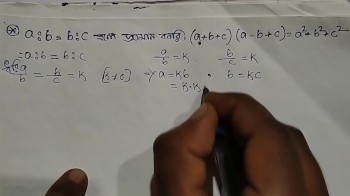 ⊛ a:b = b:c হলে প্রমাণ করি, (a+b+c)(a-b+c)=a²+b²+c²
a:b = b:c  a/b = K  b/c = K
a/b = b/c = K [K≠0] a = Kb • b = KC
= K·K